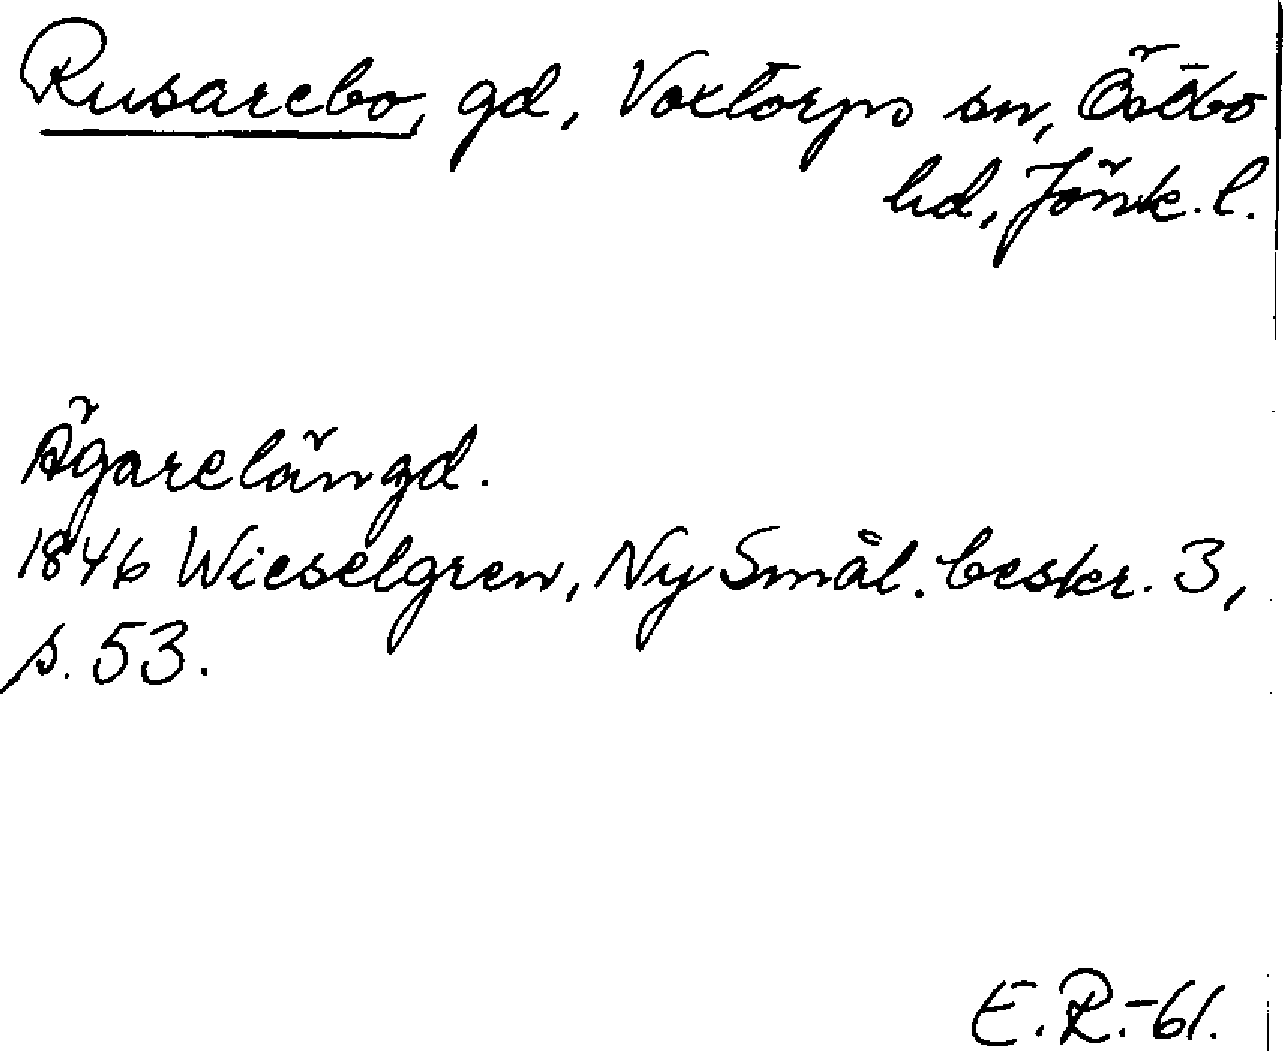 Rusarebo, gd, Voxtorps sn, Östbo
hd, Jönk. l.
Ägarelängd.
1846 Wieselgren, Ny Smål. beskr. 3,
s. 53.
E. R.-61.